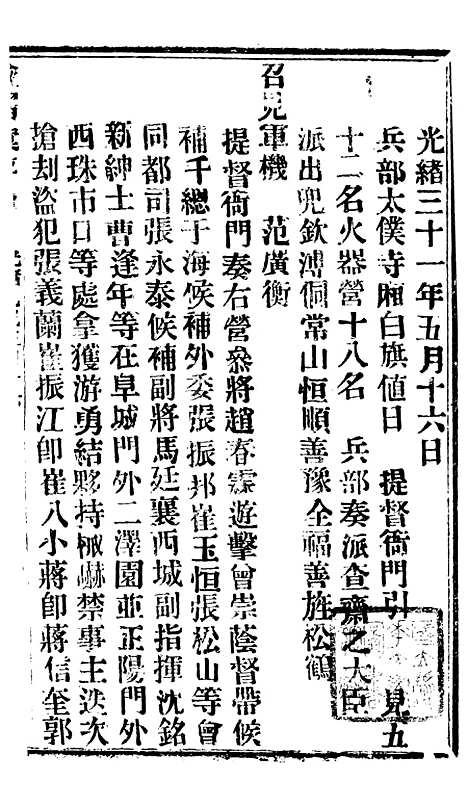 光緒三十一年五月十六日
兵部太僕寺廂白旗值日 提督衙門引 見五
十二名火器營十八名 兵部奏派查齋之大臣
派出兜欽溥侗常山恒順善豫全福善旌松鶴
召見軍機 范廣衡
提督衙門奏右營叅將趙春霖遊擊曾崇蔭督帶候
補千總于海候補外委張振邦崔玉恒張松山等會
同都司張永泰候補副將馬廷襄西城副指揮沈銘
新紳士曹逢年等在阜城門外二澤園並正陽門外
西珠市口等處拿獲游勇結夥持械嚇禁事主迭次
搶刦盜犯張義蘭崔振江卽崔八小蔣卽蔣信奎郭